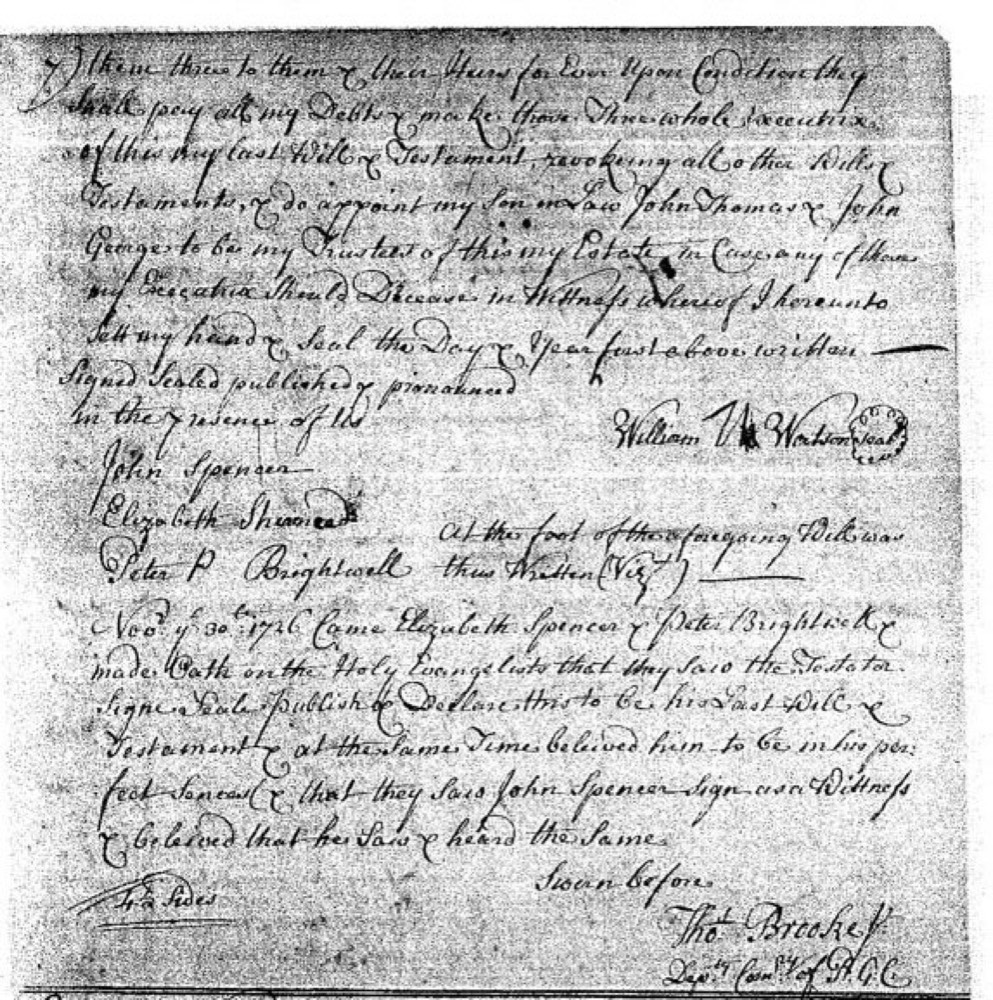 7) them three to them & their Heirs for Ever Upon Condition they
shall pay all my Debts & make those Three whole Executrix
of this my last Will & Testament, revokeing all other Wills &
Testaments, & do appoint my Son in Law John Thomas & John
George to be my Trustees of this my Estate in Case any of these
my Executrix Should Decease in Wittness whereof I hereunto
sett my hand & Seal the Day & Year first above written
Signed Sealed published & pronounced
in the presence of Us
William Watson Seal
John Spencer
Elizabeth
Peter P Brightwell
At the foot of the aforegoing Will was
thus Written (Vizt)
Novr ye 30th 1726 Came Elizabeth Spencer & Peter Brightwell &
made Oath on the Holy Evangelists that they saw the Testator
Signe Seale Publish & Declare this to be his Last Will &
Testament & at the Same Time beleived him to be in his per:
fect Sences & that they Saw John Spencer Sign as a Wittness
& beleived that he Saw & heard the Same
Sworn before
4½ Sides
Thos Brooke
Depty Comry of P. G. C.